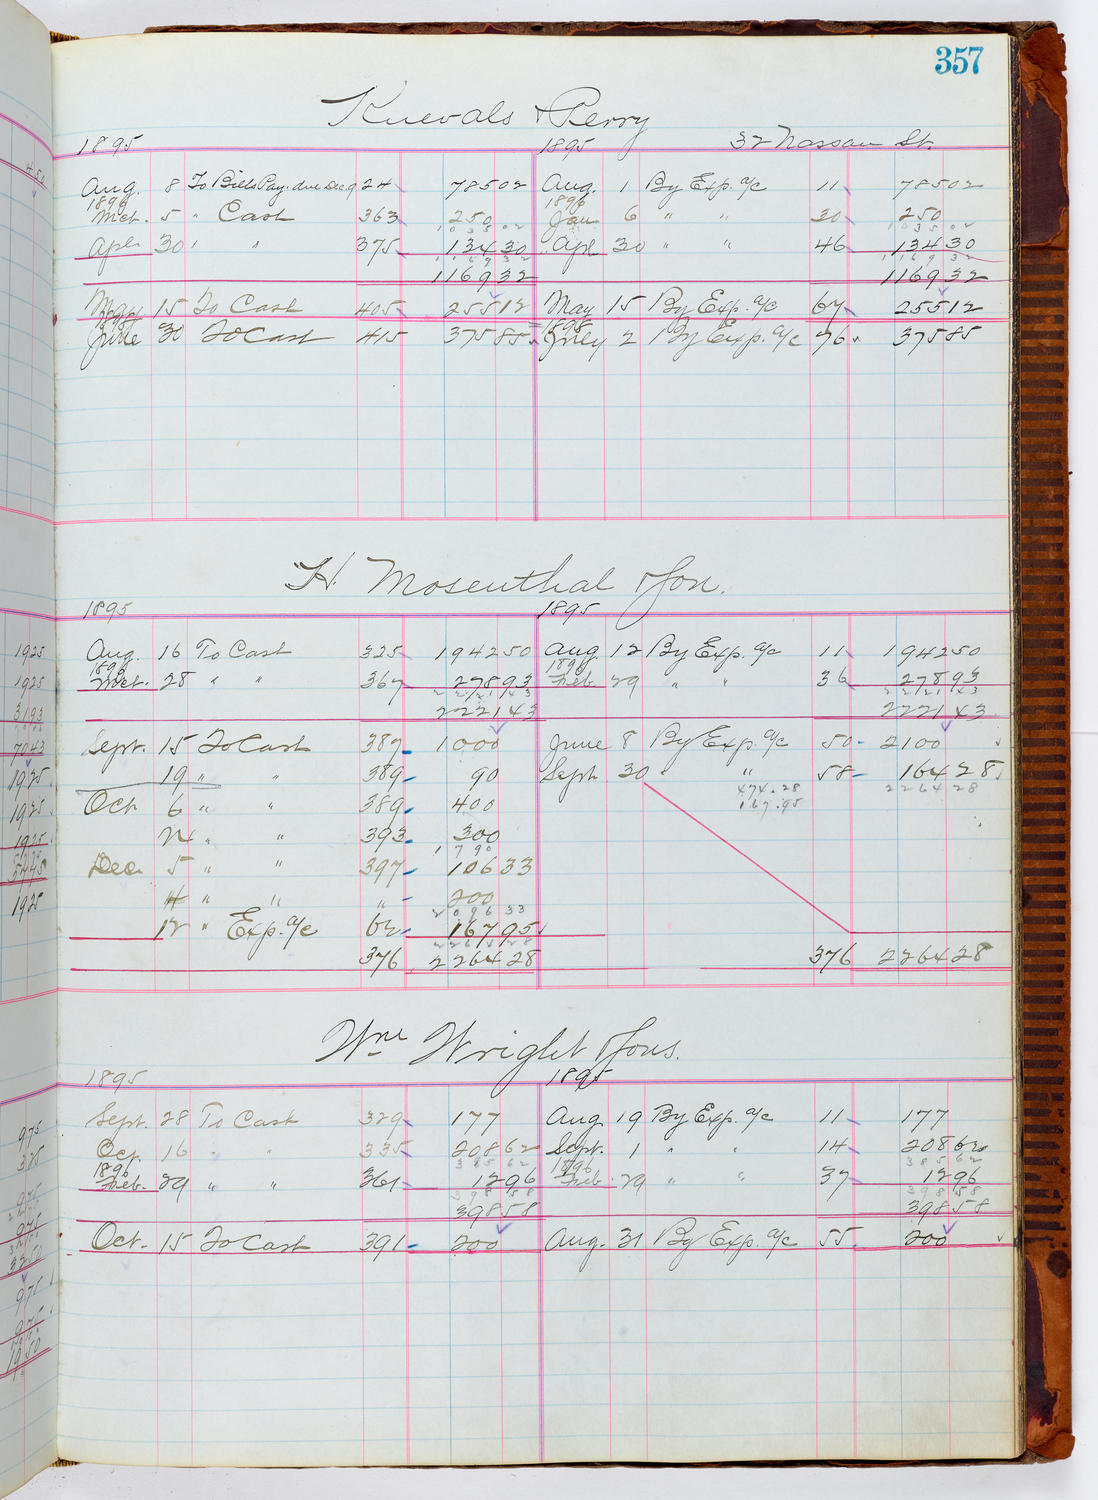 357
Knevals & Perry
1895 1895 32 Nassau St.
Aug. 8 To Bills Pay. due Dec 9 24 785 02 Aug. 1 By Exp. a/c 11 785 02
1896 1896
Mch. 5 " Cash 363 250 Jan 6 " " 30 250
1035 02 1035 02
Apl. 30 " " 375 134 30 Apl 30 " " 46 134 30
1169 32 1169 32
1169 32 1169 32
May 15 To Cash 405 255 12 May 15 By Exp. a/c 67 255 12
1898
June 30 To Cash 415 375 85 July 2 By Exp. a/c 96 375 85
H. Mosenthal & Son.
1895 1895
Aug. 16 To Cash 325 1942 50 Aug 12 By Exp. a/c 11 1942 50
1896 1896
Mch. 28 " " 367 278 93 Feb. 29 " " 36 278 93
2221 43 2221 43
2221 43 2221 43
Sept. 15 To Cash 387 1000 June 8 By Exp. a/c 50 2100
19 " " 389 90 Sept 30 " " 58 164 28
474.28 2264 28
Oct 6 " " 389 400 167.95
21 " " 393 300
1790
Dec 5 " " 397 106 33
" " " 200
2096 33
12 " Exp. a/c 62 167 95
2264 28
376 2264 28 376 2264 28
Wm Wright & Sons.
1895 1895
Sept. 28 To Cash 329 177 Aug 19 By Exp. a/c 11 177
Oct. 16 " " 335 208 62 Sept. 1 " " 14 208 62
1896 385 62 1896 385 62
Feb. 29 " " 361 12 96 Feb. 29 " " 37 12 96
398 58 398 58
398 58 398 58
Oct. 15 To Cash 391 200 Aug. 31 By Exp. a/c 55 200